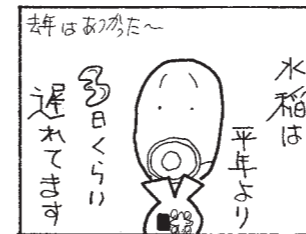 去年はあつかった〜
水稲は
平年より
3日くらい
遅れてます